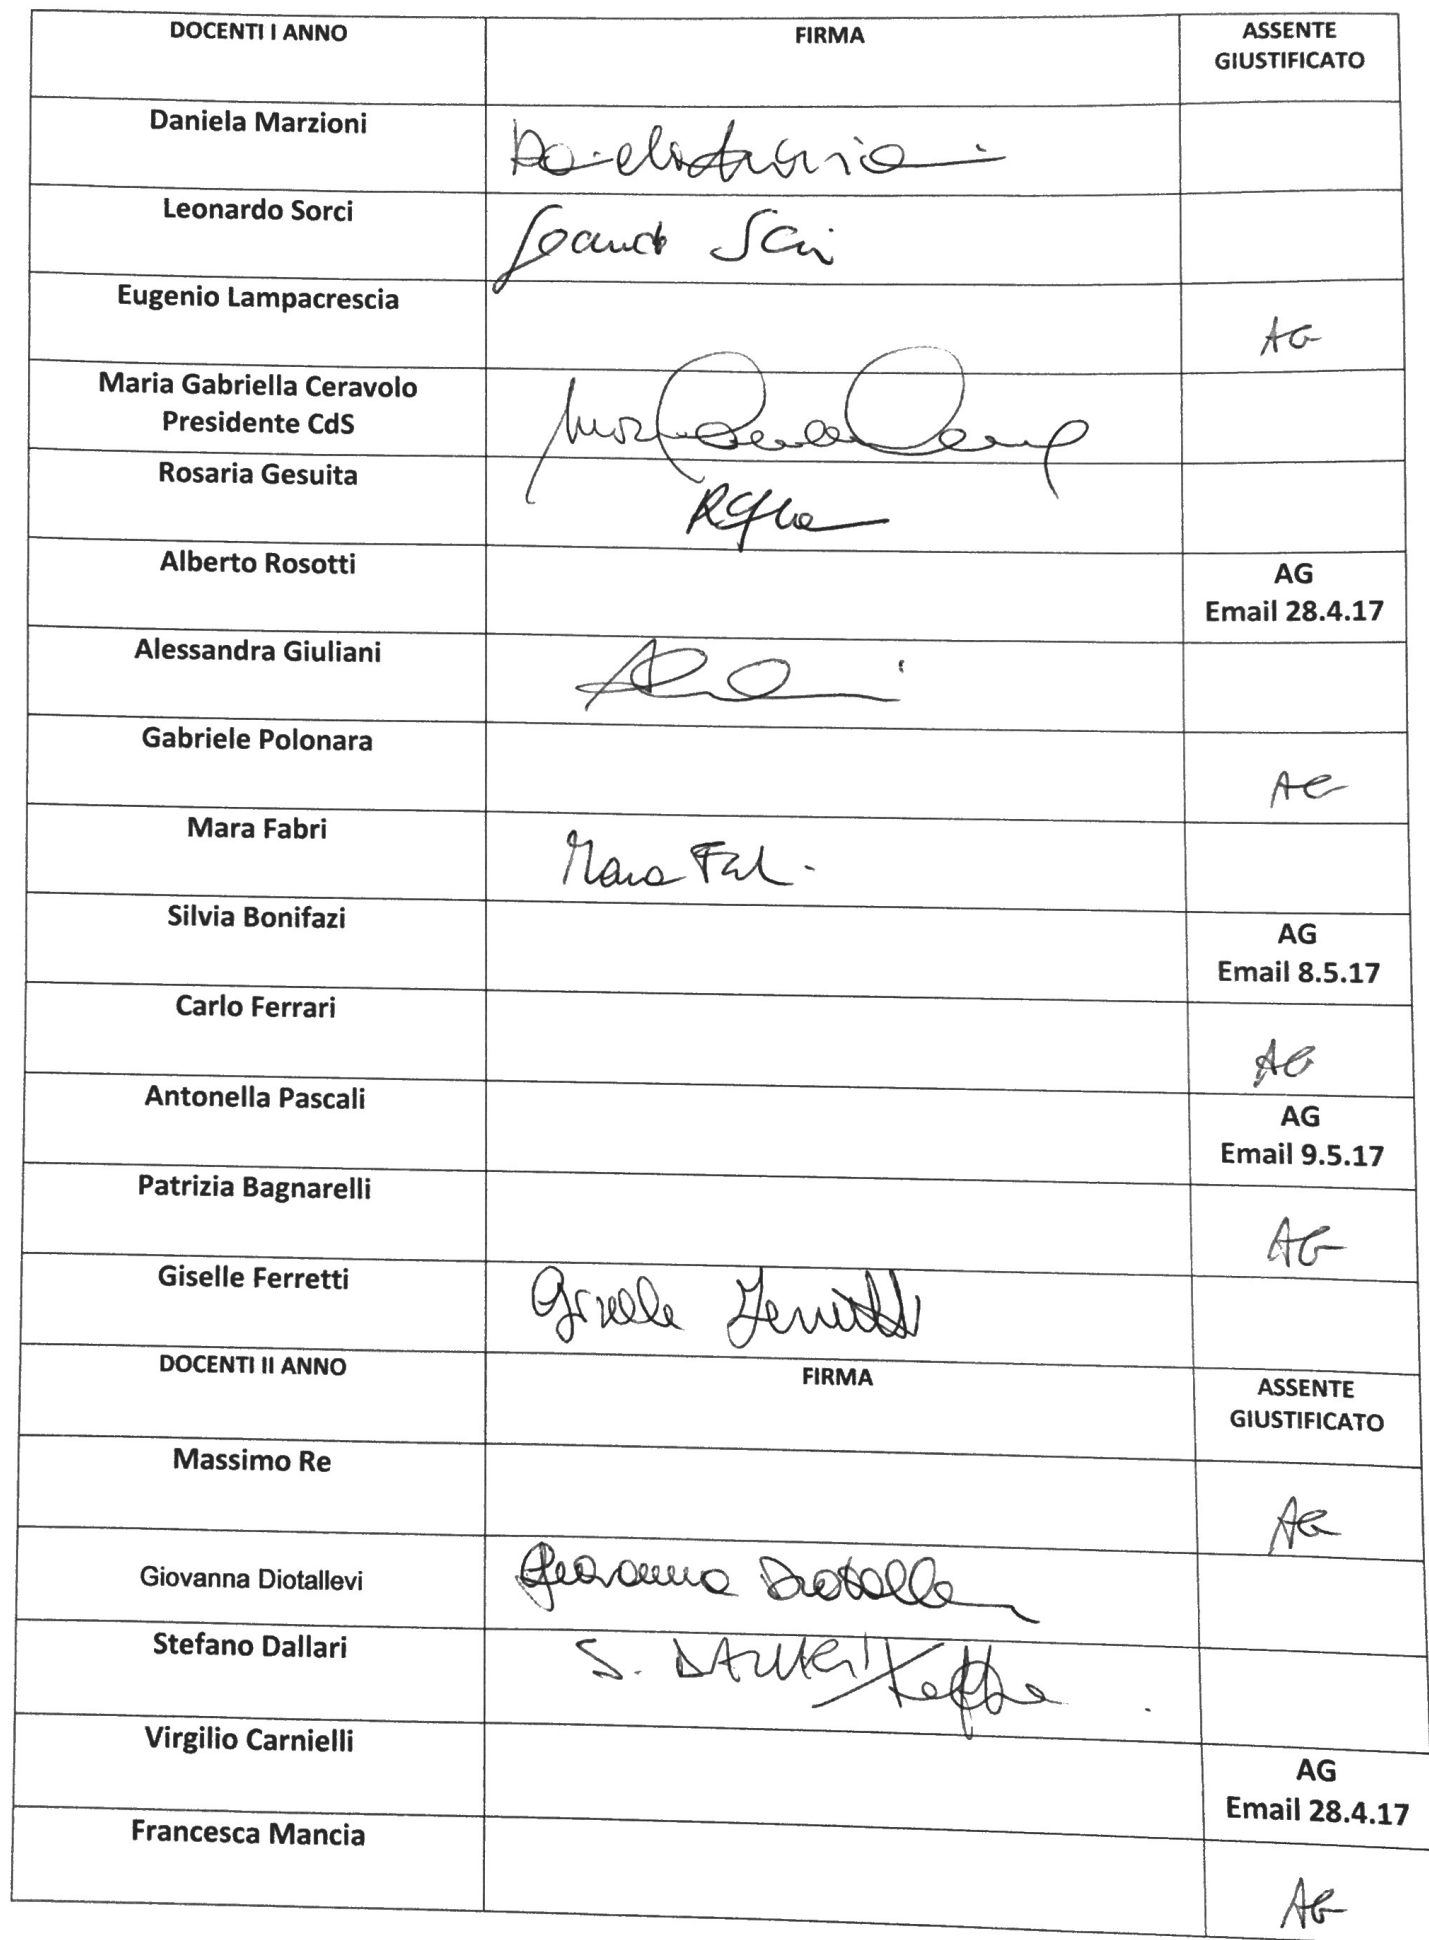 DOCENTI I ANNO FIRMA ASSENTE
GIUSTIFICATO
Daniela Marzioni
Leonardo Sorci
Eugenio Lampacrescia AG
Maria Gabriella Ceravolo
Presidente CdS
Rosaria Gesuita
Alberto Rosotti AG
Email 28.4.17
Alessandra Giuliani
Gabriele Polonara AG
Mara Fabri Mara
Silvia Bonifazi AG
Email 8.5.17
Carlo Ferrari AG
Antonella Pascali AG
Email 9.5.17
Patrizia Bagnarelli AG
Giselle Ferretti Giselle Ferretti
DOCENTI II ANNO FIRMA ASSENTE
GIUSTIFICATO
Massimo Re AG
Giovanna Diotallevi Giovanna
Stefano Dallari S. DALLARI
Virgilio Carnielli AG
Email 28.4.17
Francesca Mancia AG